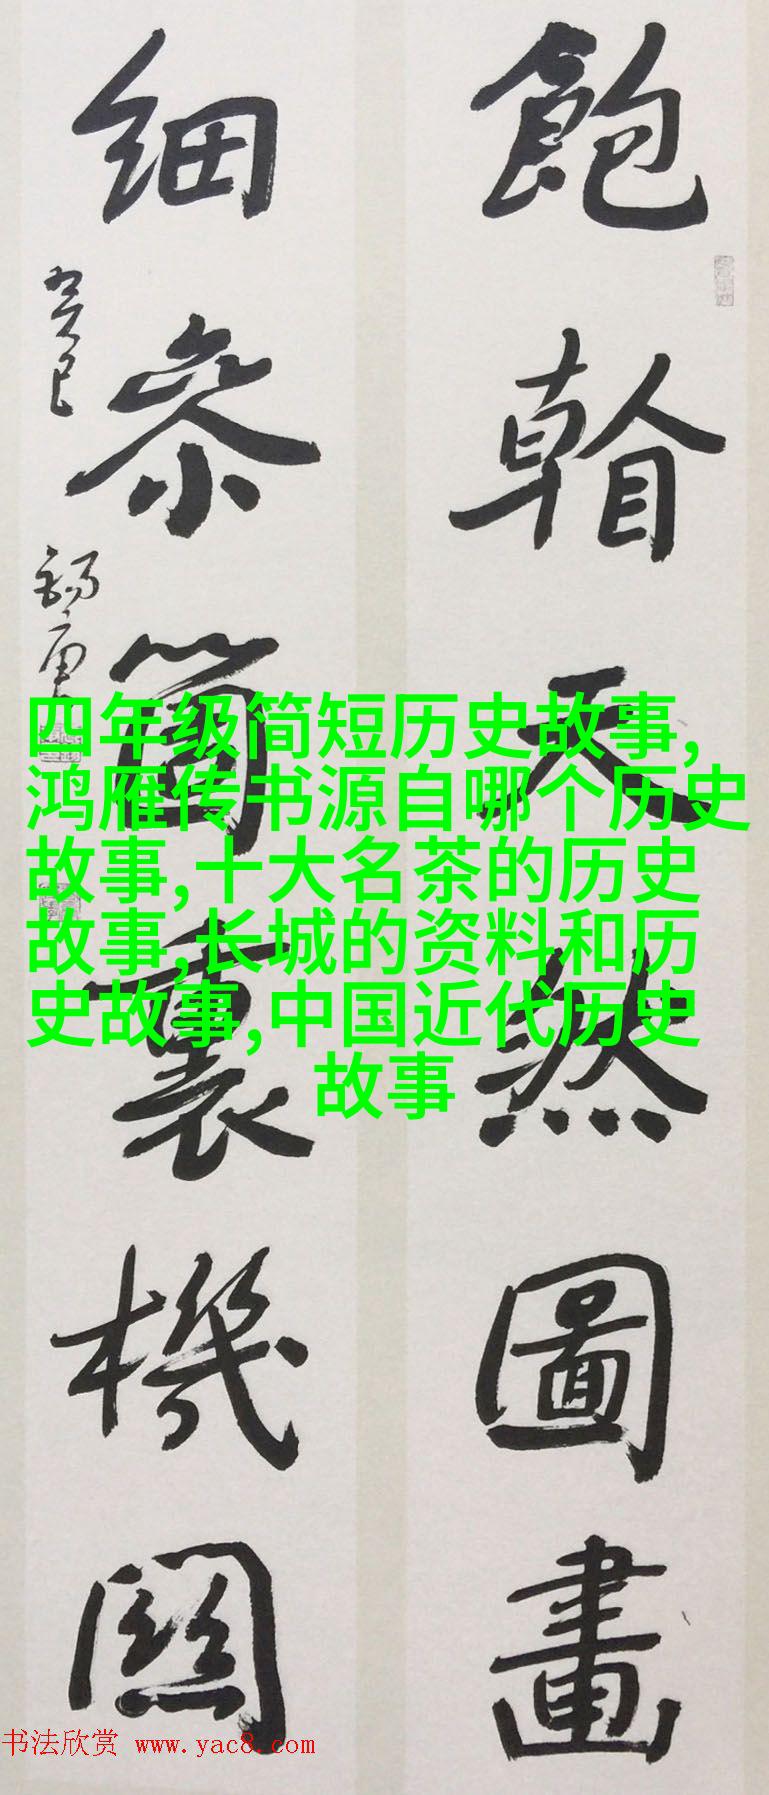 飽天然圖畫
細參箇裏機關
癸巳
四年级简短历史故事,
鸿雁传书源自哪个历史
故事,十大名茶的历史
故事,长城的资料和历
史故事,中国近代历史
故事
书法欣赏 www.yac8.com